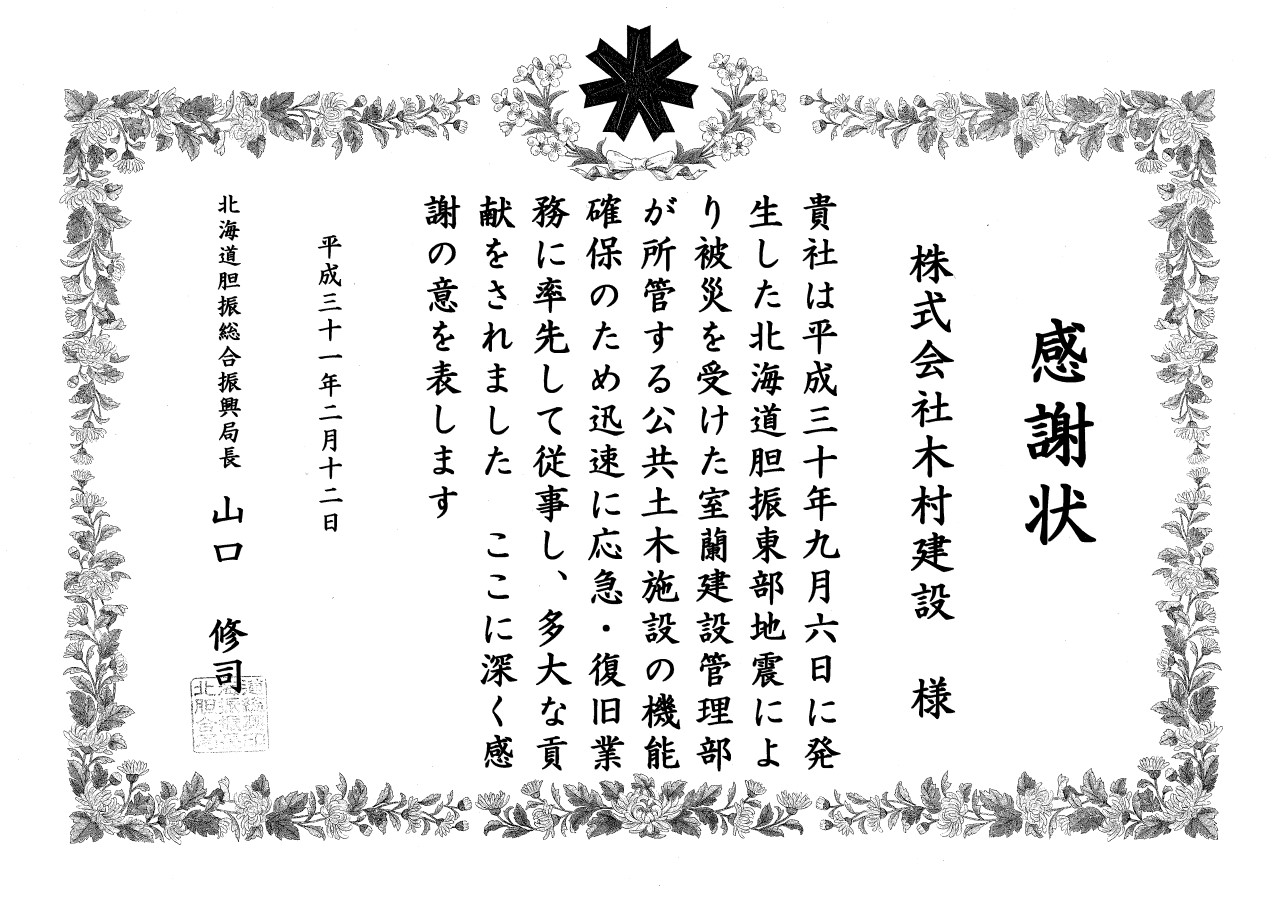 感謝状
株式会社木村建設 様
貴社は平成三十年九月六日に発
生した北海道胆振東部地震によ
り被災を受けた室蘭建設管理部
が所管する公共土木施設の機能
確保のため迅速に応急・復旧業
務に率先して従事し、多大な貢
献をされました ここに深く感
謝の意を表します
平成三十一年二月十二日
北海道胆振総合振興局長 山口 修司